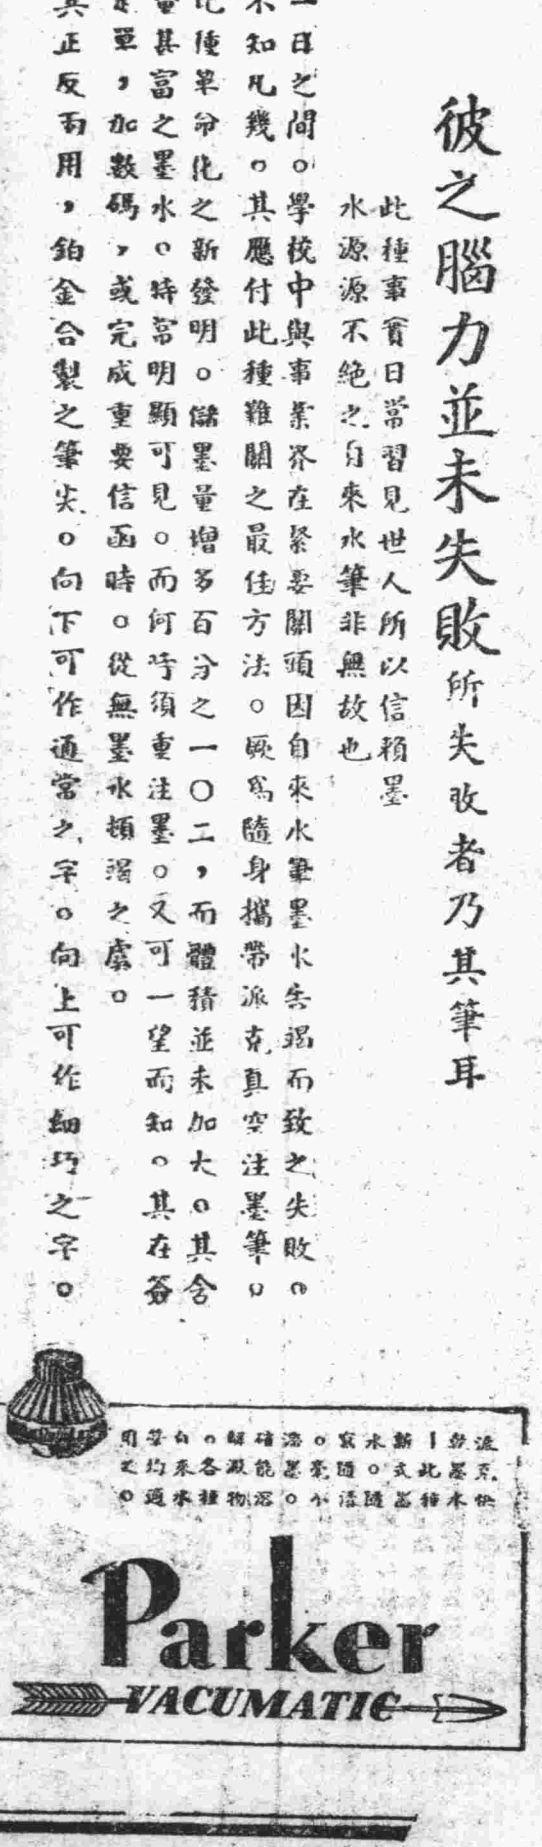 彼之腦力並未失敗所失敗者乃其筆耳
此種事實日常習見世人所以信賴墨
水源源不絕之自來水筆非無故也
一日之間。學校中與事業界在緊要關頭因自來水筆墨水告竭而致之失敗。
不知凡幾。其應付此種難關之最佳方法。厥爲隨身攜帶派克真空注墨筆。
此種革命化之新發明。儲墨量增多百分之一〇二,而體積並未加大。其含
量其富之墨水。時常明顯可見。而何時須重注墨。又可一望而知。其在簽
單,加數碼,或完成重要信函時。從無墨水頓竭之虞。
其正反兩用,鉑金合製之筆尖。向下可作通常之字。向上可作細巧之字。
派克快
乾墨水
—此種
新式墨
水。隨
寫隨
。毫不
濡墨。
確能溶
解澱物
。各種
自來水
筆均適
用之。
Parker
VACUMATIC